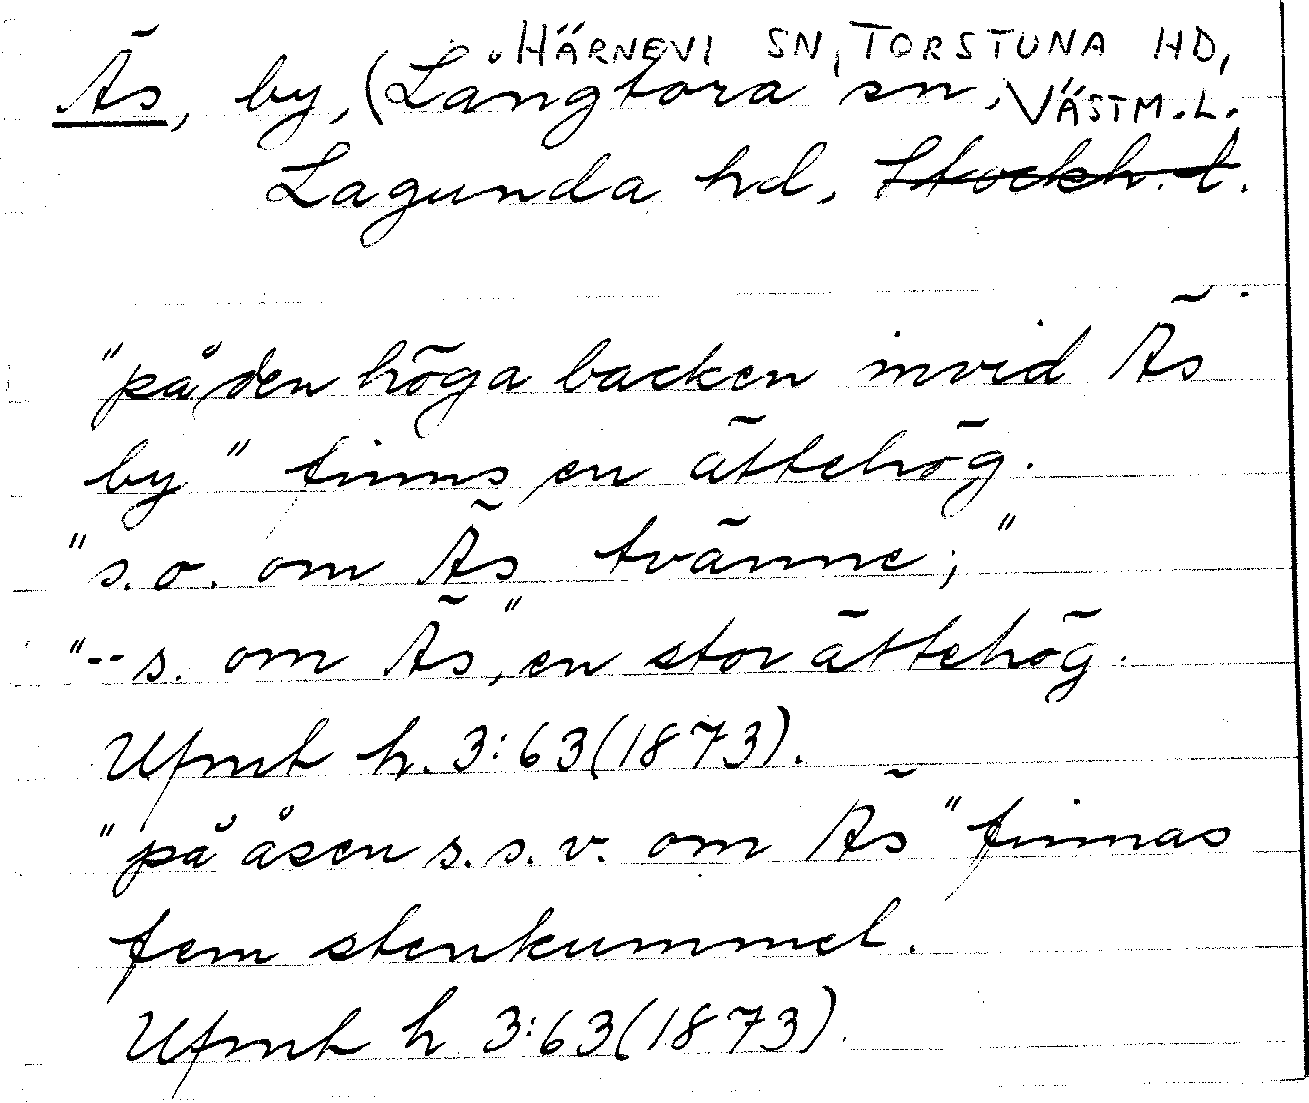 HÄRNEVI SN, TORSTUNA HD,
Äs, by, (Långtora sn, VÄSTM.L.
Lagunda hd, Stockh. l.
"på den höga backen invid Äs
by" finns en ättehög.
"s.o. om Äs tvänne;"
"-- s. om Äs", en stor ättehög.
Ufmt h. 3:63(1873).
"på åsen s.s.v. om Äs" finnas
fem stenkummel.
Ufmt h 3:63(1873).